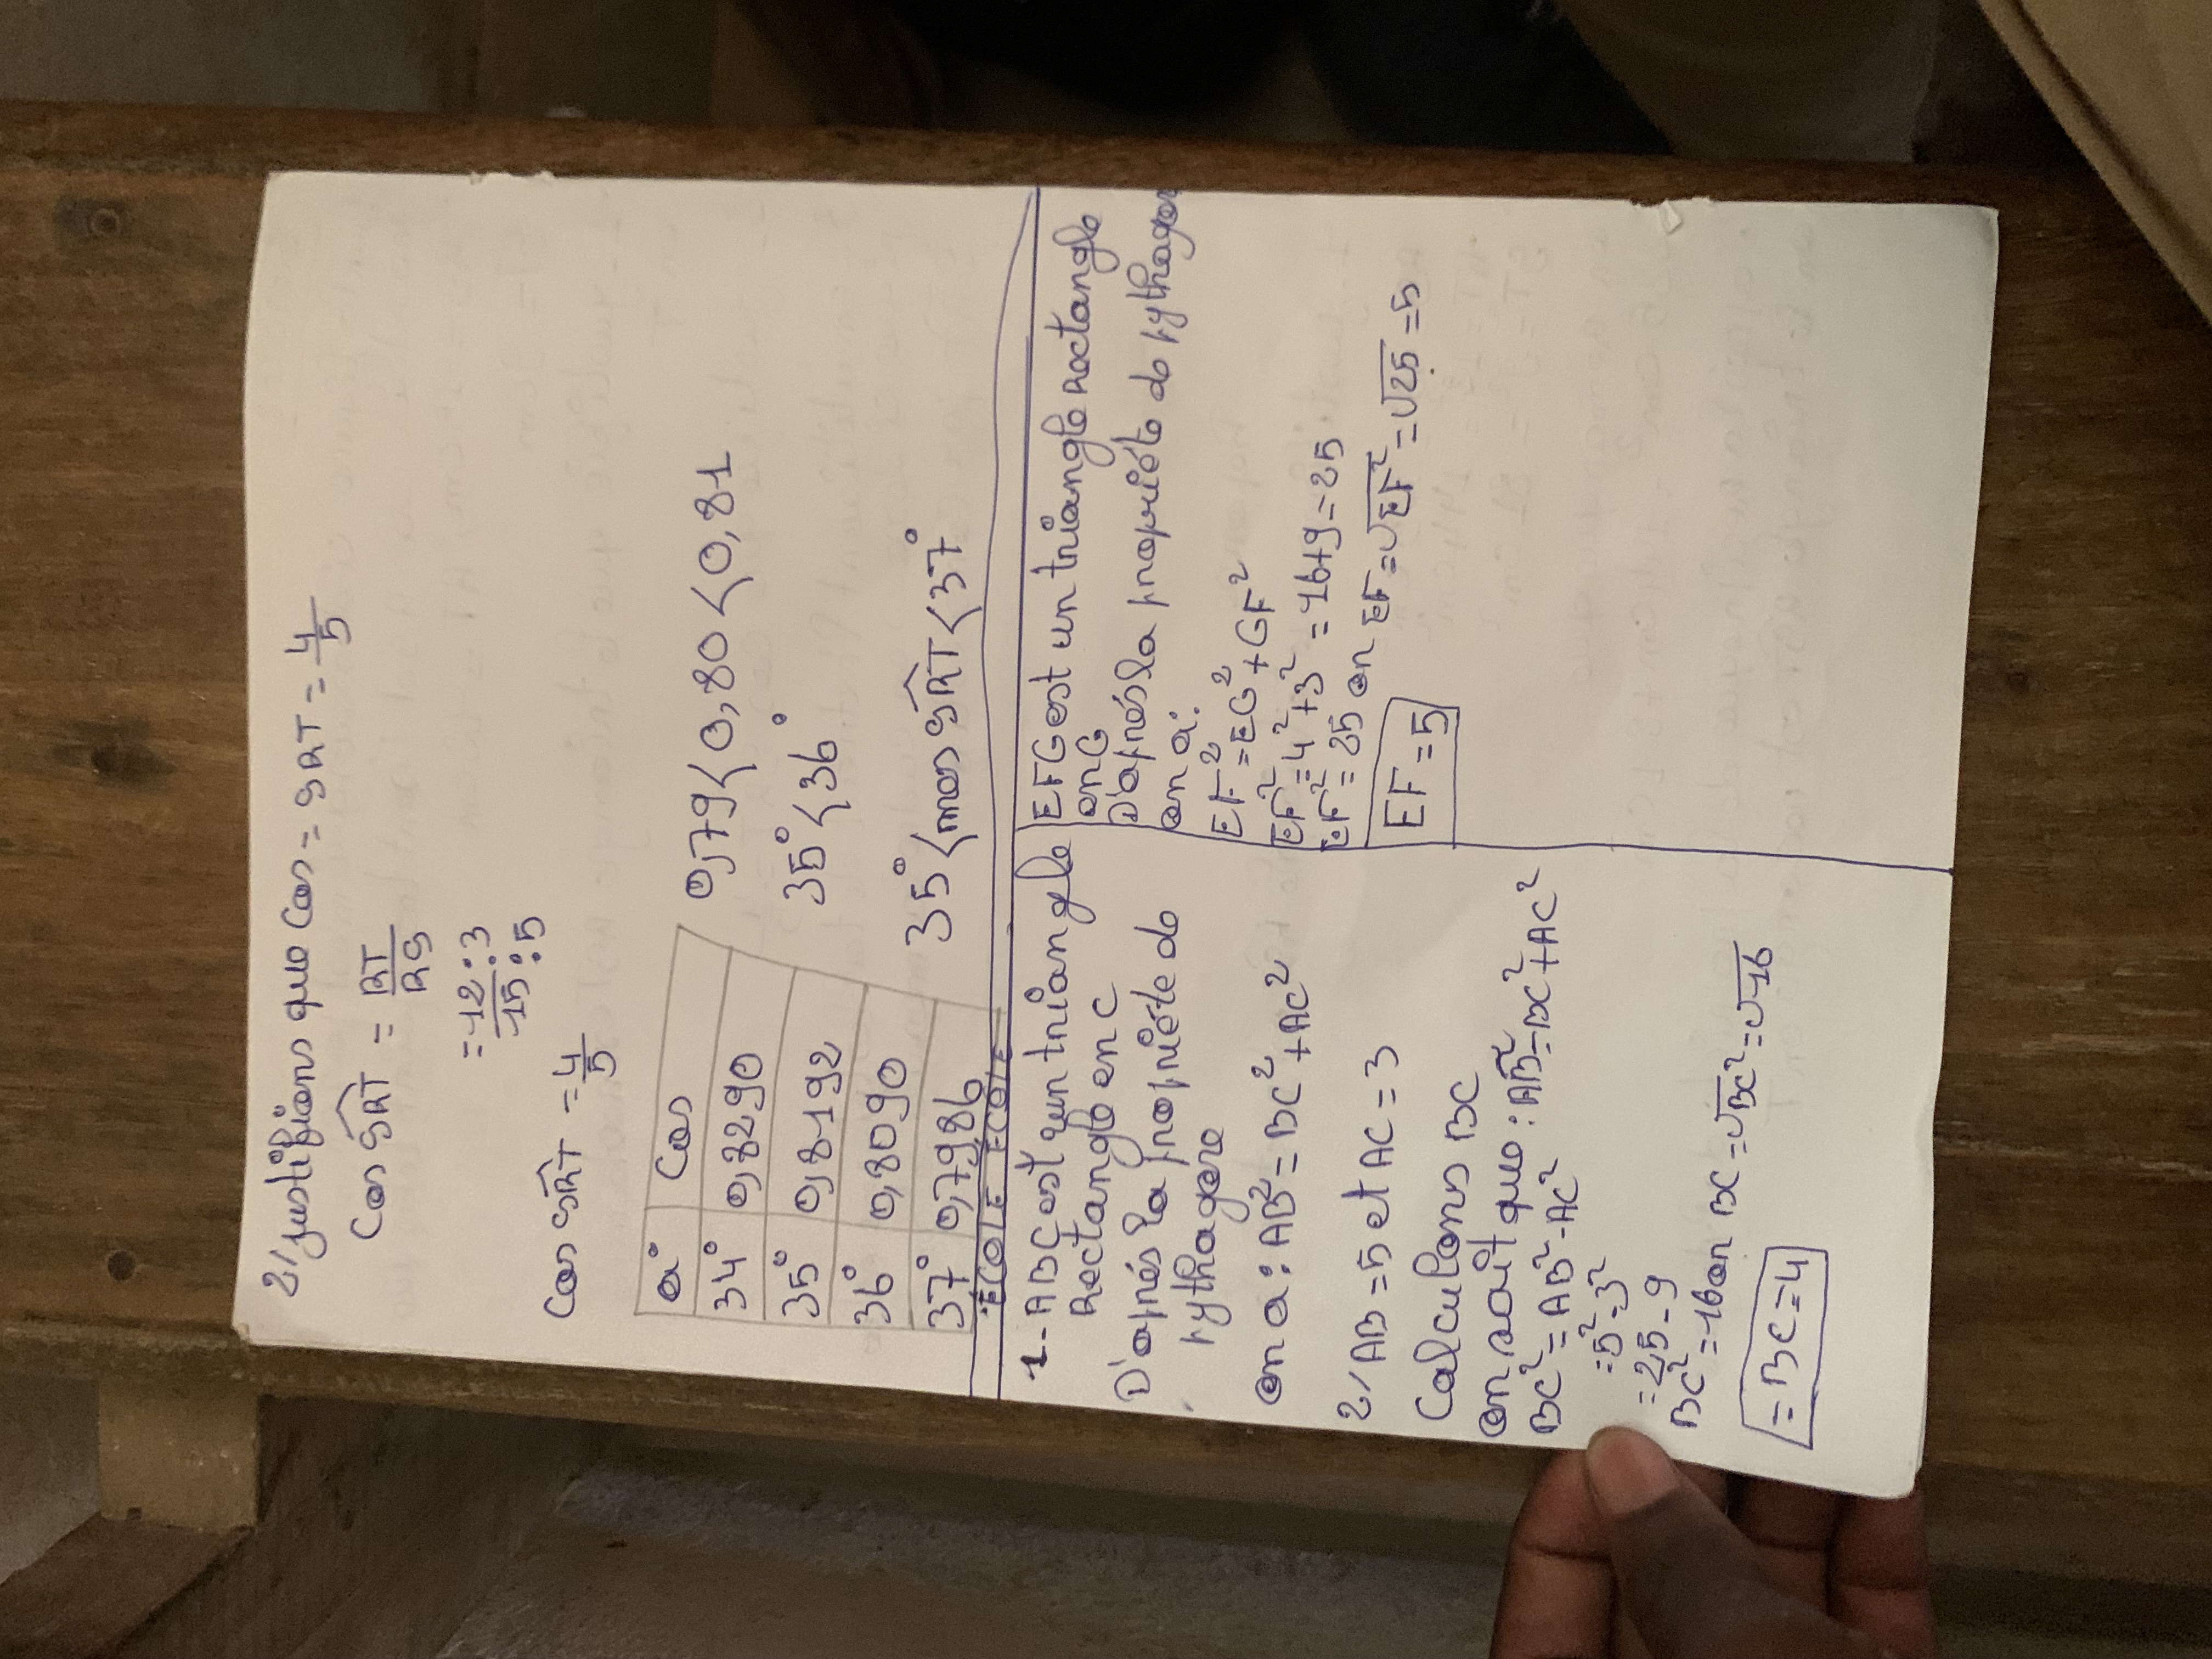 2/ justifions que Cos = SRT = 4/5
Cos SRT = RT/RS
= 12:3/15:5
Cos SRT = 4/5
a° Cos
34° 0,8290
35° 0,8192
36° 0,8090
37° 0,7986
0,79 < 0,80 < 0,81
35° < 36°
35° < mes SRT < 37°
ECOLE ECOLE
1- ABC est un triangle
Rectangle en C
D'après la propriéte de
pythagore
on a : AB² = BC² + AC²
2/ AB = 5 et AC = 3
Calculons BC
on sait que : AB² = BC² + AC²
BC² = AB² - AC²
= 5² - 3²
= 25 - 9
BC² = 16 on BC = √BC² = √16
= BC = 4
EFG est un triangle Rectangle
en G
D'après la propriéte de pythagore
on a :
EF² = EG² + GF²
EF² = 4² + 3² = 16 + 9 = 25
EF² = 25 on EF = √EF² = √25 = 5
EF = 5